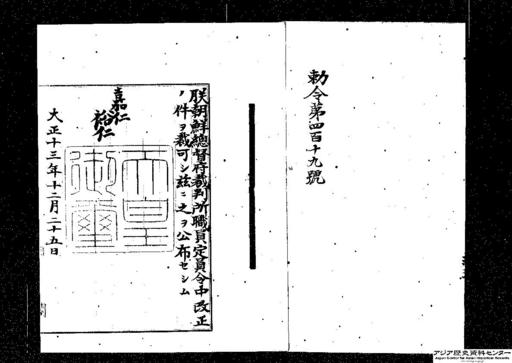 勅令第四百十九號
朕朝鮮總督府裁判所職員定員令中改正
ノ件ヲ裁可シ茲ニ之ヲ公布セシム
嘉仁
裕仁
天皇御璽
大正十三年十二月二十五日
アジア歴史資料センター
Japan Center for Asian Historical Records